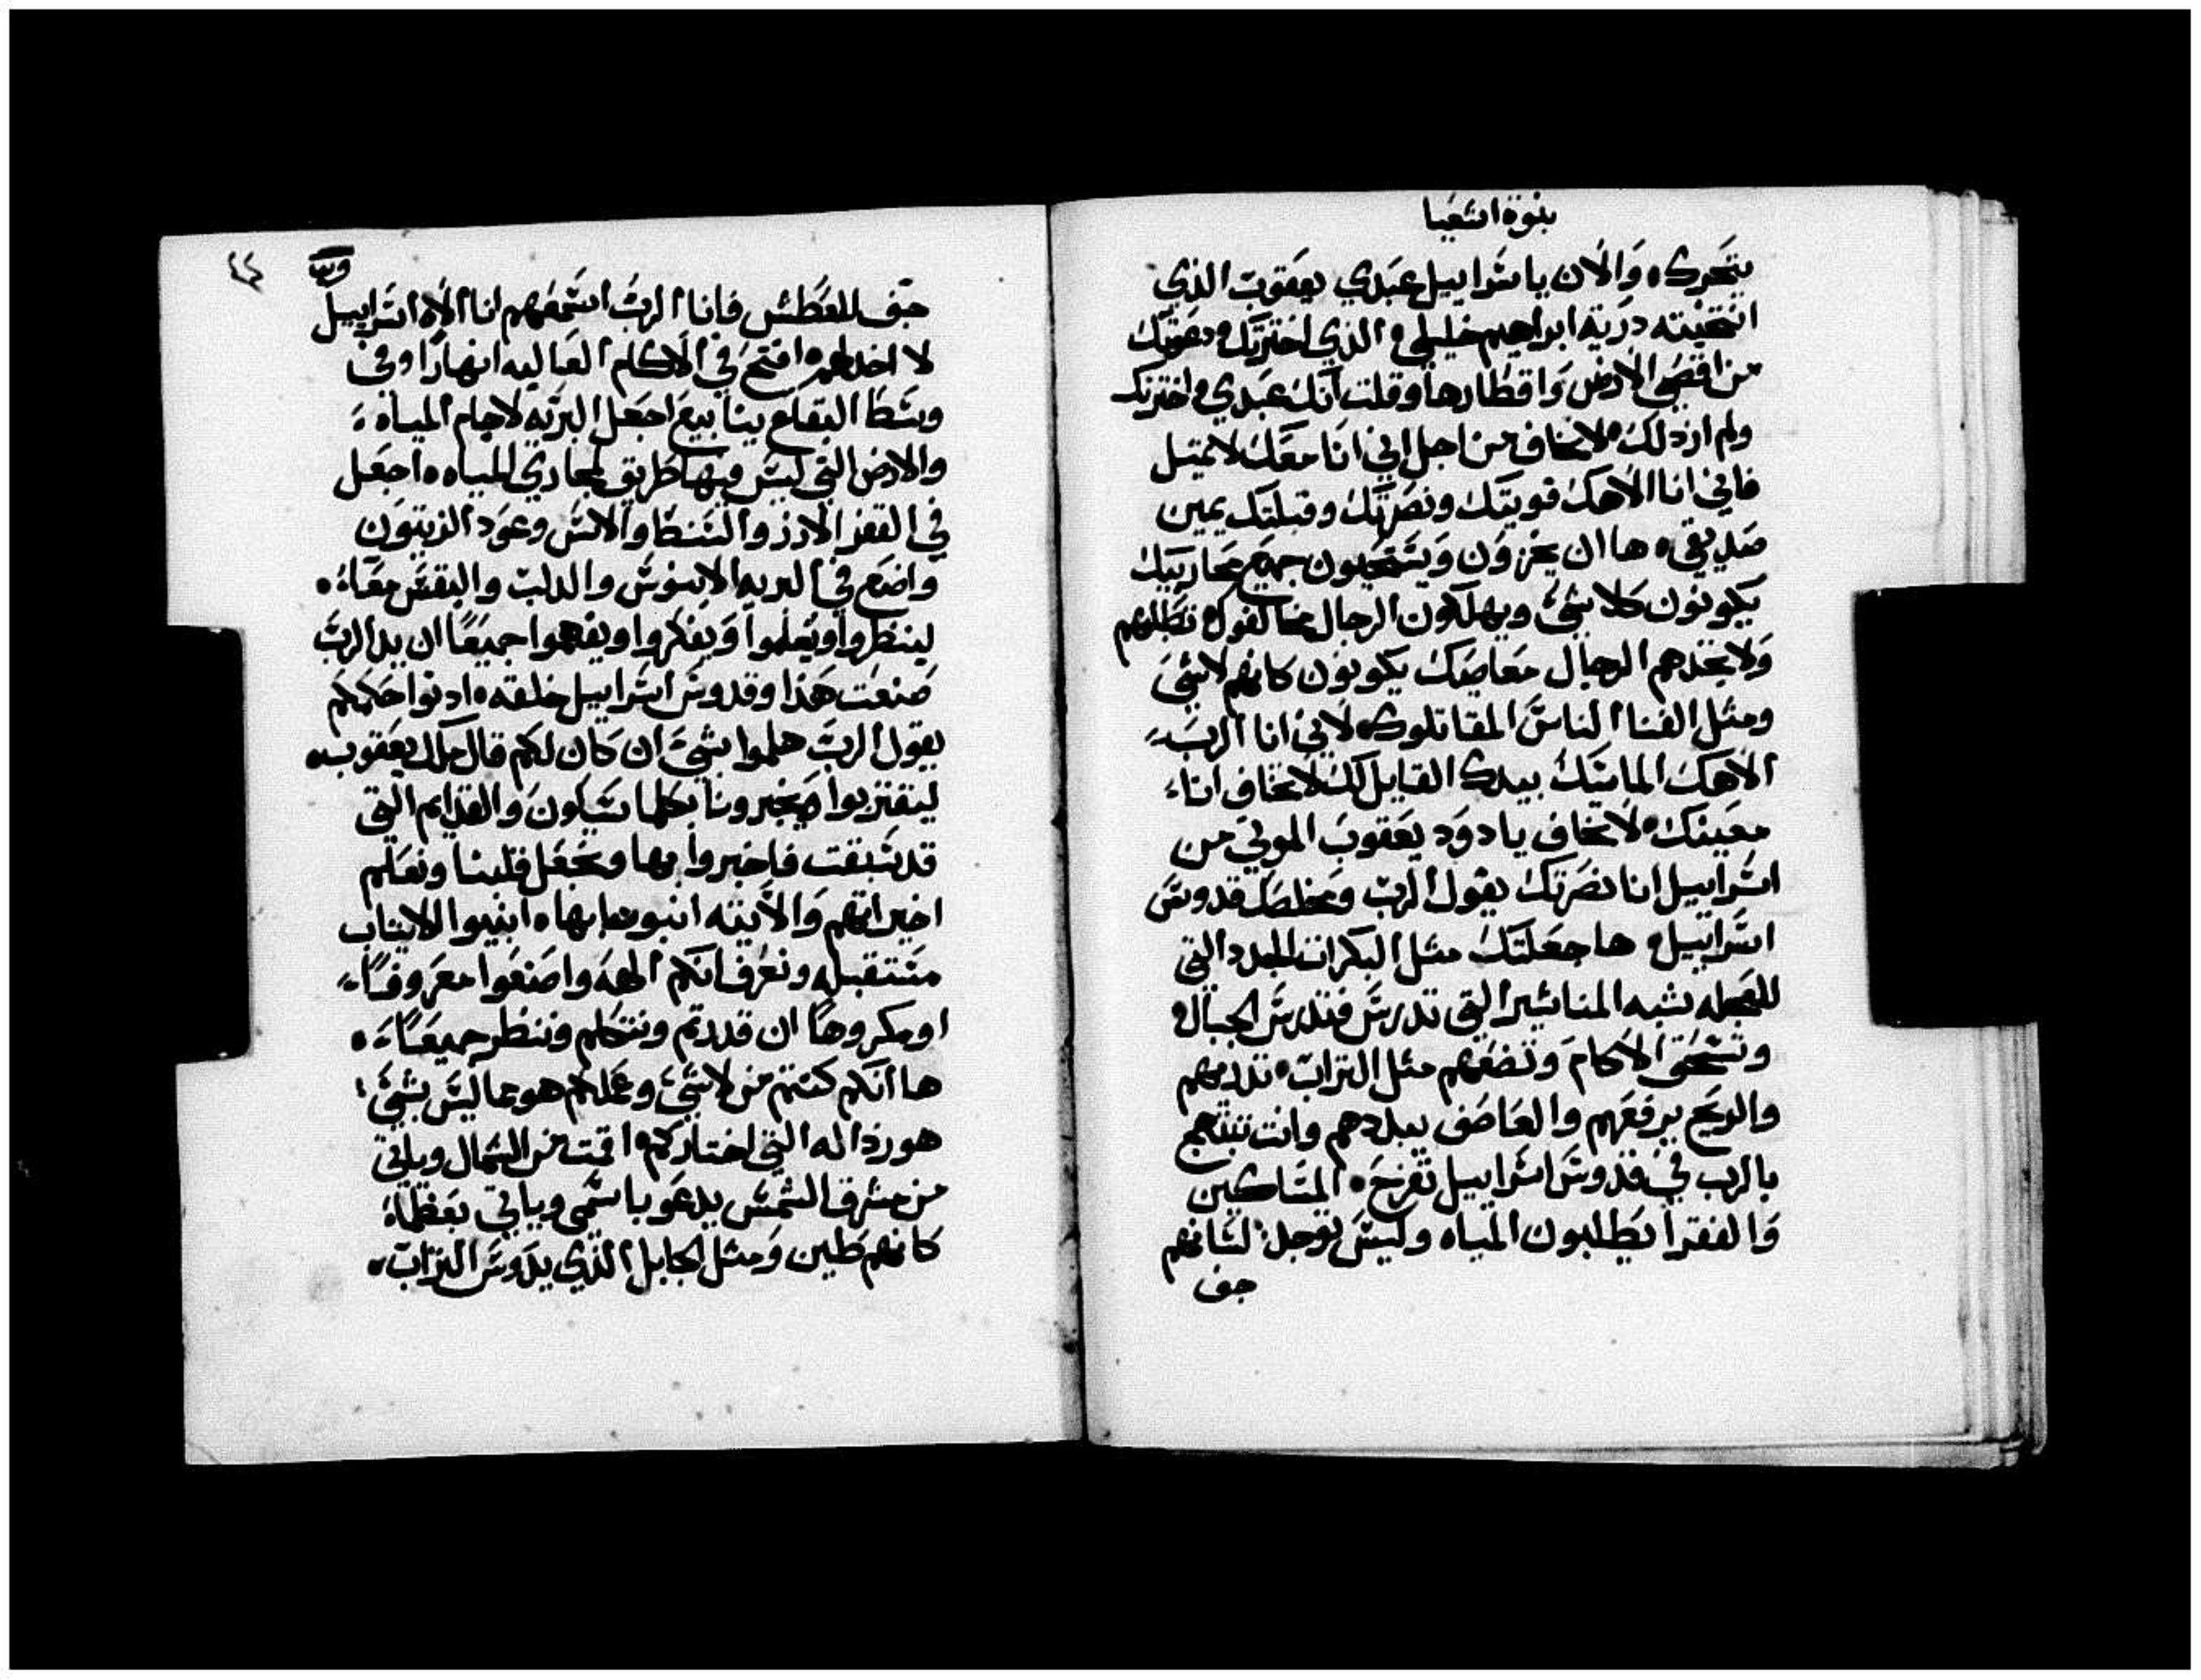 بنوة اشعيا
يتحرك، والان يا اسراييل عبدي يعقوب الذي
انتخبته درية ابراهيم خليلي، الذي اخترتك ودعوتك
من اقصى الارض واقطارها، وقلت انك عبدي، اخترتك
ولم ارذلك، لا تخاف من اجل اني انا معك لا تميل
فاني انا الاهك قويتك ونصرتك وقبلتك يمين
صديقي، ها ان يخزون ويستحيون جميع محاربيك
يكونون كلا شي ويهلكون الرجال مخالفوك، تطلبهم
ولا تجدهم الرجال معاصيك يكونون كانهم لا شي
ومثل الفنا الناس المقاتلوك، لاني انا الرب
الاهك الماسك بيدك القايل لك لا تخاف انا
معينك، لا تخاف يا دود يعقوب الموتي من
اسراييل انا نصرتك يقول الرب ومخلصك قدوس
اسراييل، ها جعلتك مثل البكرات الجدد التي
للعجله شبه المناشير التي تدرس فتدرس الجبال،
وتسحق الاكام وتضعهم مثل التراب، تدريهم
والريح يرفعهم والعاصف يبددهم وانت تبتهج
بالرب في قدوس اسراييل تفرح، المساكين
والفقرا يطلبون المياه وليس توجد، لسانهم
جف
وس
٤٤
جف للعطش فانا الرب اسمعهم انا الاه اسراييل
لا اخذلهم، افتح في الاكام العاليه انهارا وفي
وسط البقاع ينابيع اجعل البريه لاجام المياه،
والارض التي ليس فيها طريق لمجاري المياه، اجعل
في القفر الارز والسنط والاس وعود الزيتون
واضع في البريه الابنوس والدلب والبقس معا،
لينظروا ويعلموا ويفكروا ويفهموا جميعا ان يد الرب
صنعت هذا وقدوس اسراييل خلقه، ادنوا حكمكم
يقول الرب هلموا بشي ان كان لكم قال ملك يعقوب،
ليقتربوا ويخبرونا بكلما سيكون والقدايم التي
قد سبقت فاخبروا بها ونجعل قلبنا ونعلم
اخيراتهم والاتيه انبونا بها، انبيوا الاتيات
مستقبله ونعرف انكم الهه واصنعوا معروفا،
او مكروها ان قدرتم ونتكلم وننظر جميعا،
ها انكم كنتم من لا شي وعملكم هو مما ليس بشي،
هو رذاله التي اختاركم، اقمت من الشمال وياتي
من مشرق الشمس يدعو باسمي وياتي بعظما
كانهم طين ومثل الجابل الذي يدوس التراب،